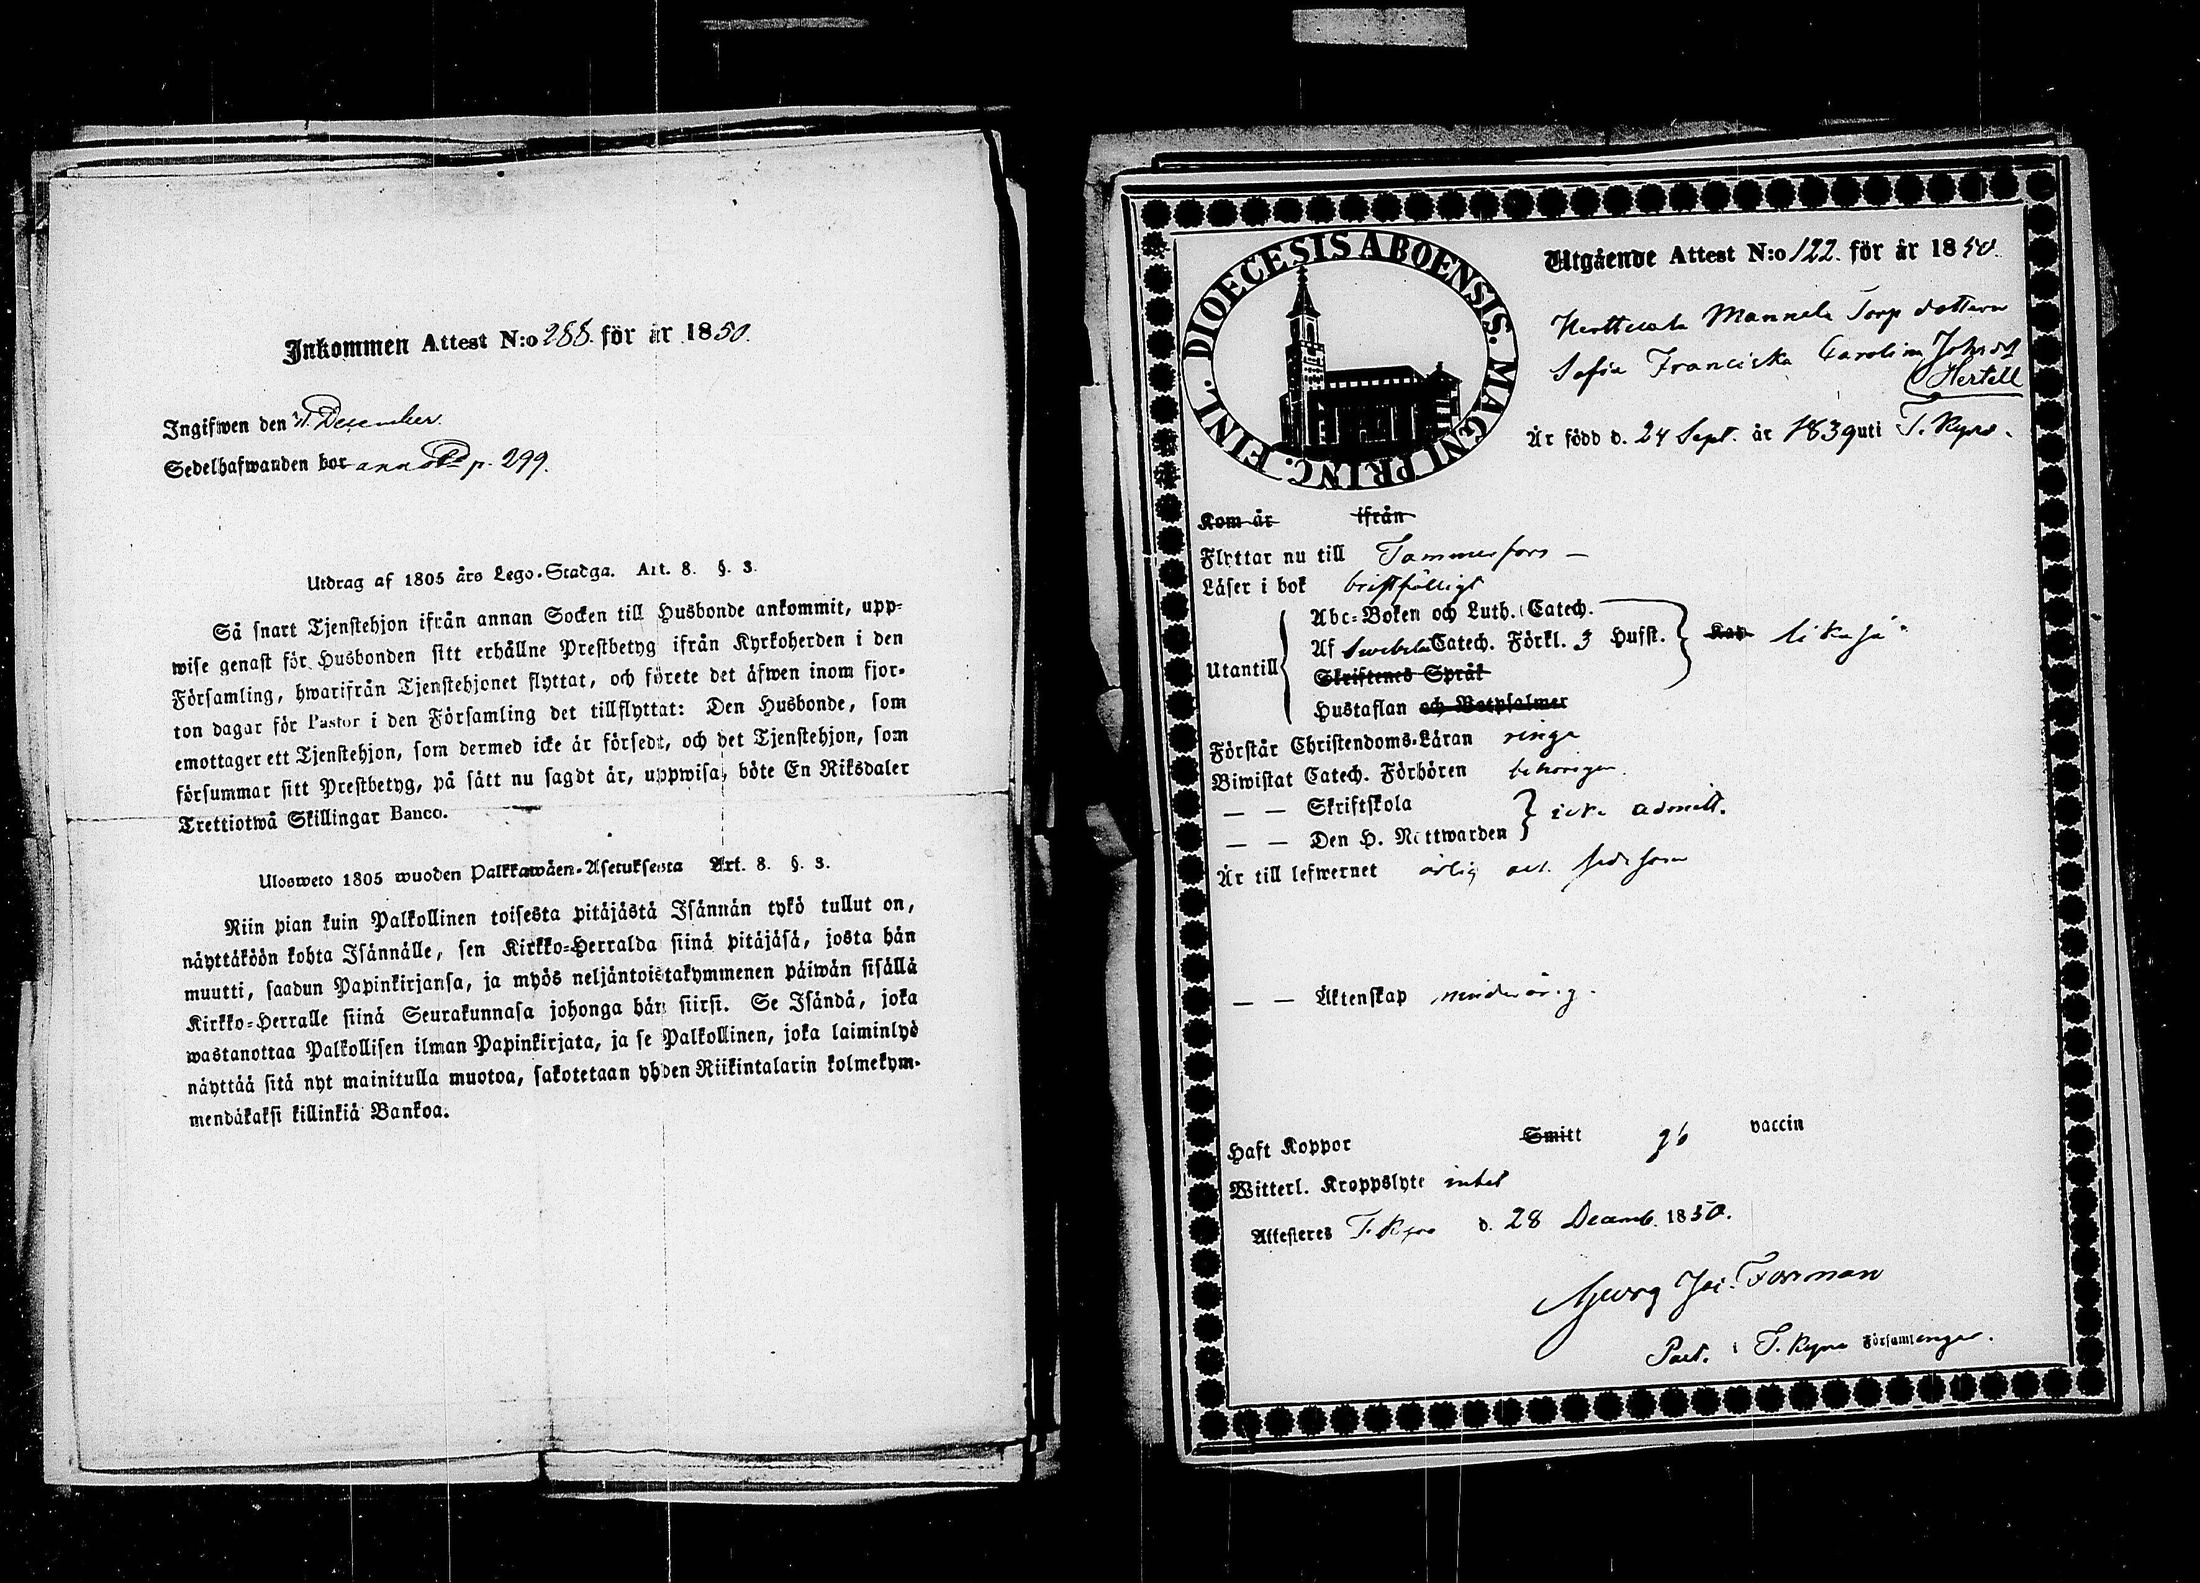 Inkommen Attest N:o 288. för år 1850.
Ingifwen den 31 December.
Sedelhafwanden bor annot. p. 299.
Utdrag af 1805 års Lego-Stadga. Art. 8. §. 3.
Så snart Tjenstehjon ifrån annan Socken till Husbonde ankommit, upp-
wise genast för Husbonden sitt erhållne Prestbetyg ifrån Kyrkoherden i den
Församling, hwarifrån Tjenstehjonet flyttat, och förete det äfwen inom fjor-
ton dagar för Pastor i den Församling det tillflyttat: Den Husbonde, som
emottager ett Tjenstehjon, som dermed icke är försedt, och det Tjenstehjon, som
försummar sitt Prestbetyg, på sätt nu sagdt är, uppwisa, böte En Riksdaler
Trettiotwå Skillingar Banco.
Ulosweto 1805 wuoden Palkkawäen-Asetuksesta Art. 8. §. 3.
Niin pian kuin Palkollinen toisesta pitäjästä Isännän tykö tullut on,
näyttäköön kohta Isännälle, sen Kirkko-Herralda siinä pitäjäsä, josta hän
muutti, saadun Papinkirjansa, ja myös neljäntoistakymmenen päiwän sisällä
Kirkko-Herralle siinä Seurakunnasa johonga hän siirsi. Se Isändä, joka
wastanottaa Palkollisen ilman Papinkirjata, ja se Palkollinen, joka laiminlyö
näyttää sitä nyt mainitulla muotoa, sakotetaan yhden Riikintalarin kolmekym-
mendäkaksi killinkiä Bankoa.
DIOECESIS ABOENSIS. MAGNI PRINC. FINL.
Utgående Attest N:o 122. för år 1850.
Herttuala Mannela Torp dottern
Sofia Franciska Carolina Johsd
Hertell
Är född d. 24 Sept. år 1839 uti T. Kyro.
Kom år ifrån
Flyttar nu till Tammerfors —
Läser i bok bristfälligt
Abc-Boken och Luth. Catech.
Af Swebelii Catech. Förkl. 3 Hufst. Kap likaså
Utantill
Skriftenes Språk
Hustaflan och Botpsalmer
Förstår Christendoms-Läran ringa
Biwistat Catech. Förhören behörigen.
— — Skriftskola
icke admitt.
— — Den H. Nattwarden
Är till lefwernet ärlig och sedesam
— — Äktenskap minderårig.
Haft Koppor Smitt gb vaccin
Witterl. Kroppslyte intet
Attesteres T. Kyro d. 28 Decemb. 1850.
Georg Joh. Forsman
Past. i T. Kyro Församlingar.